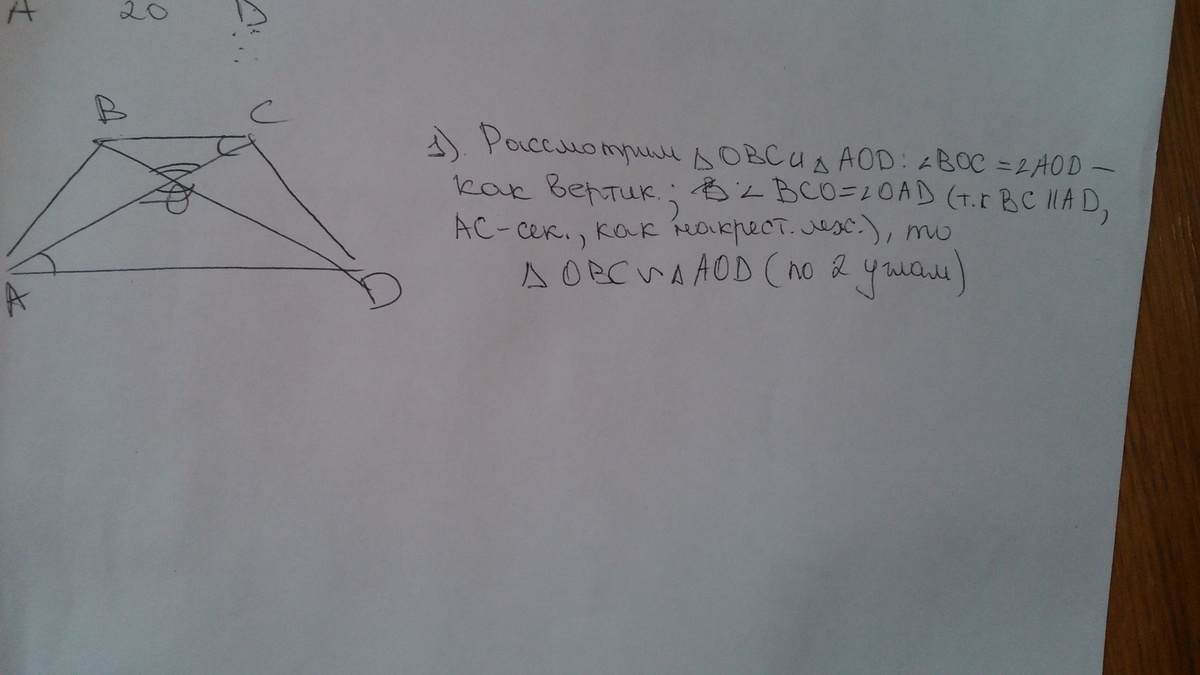 A 20 D
B C
O
A D
1). Рассмотрим △OBC и △AOD: ∠BOC = ∠AOD –
как вертик.; ∠BCO=∠OAD (т.к BC || AD,
AC-сек., как накрест. леж.), то
△OBC ∾ △AOD (по 2 углам)